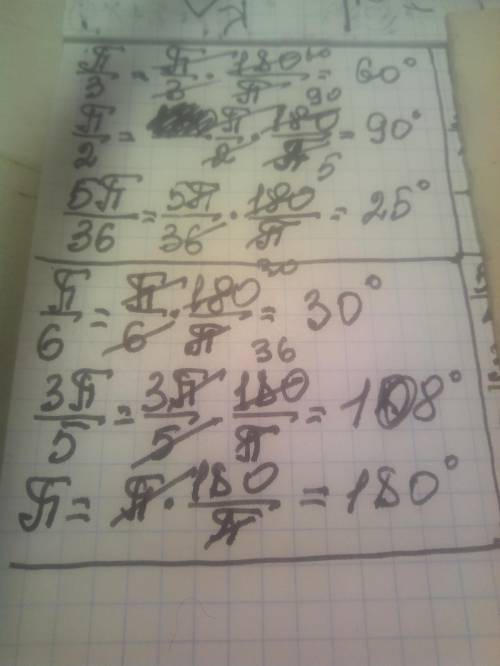 π/3 = π/3 · 180/π = 60° 60
π/2 = π/2 · 180/π = 90° 90
5π/36 = 5π/36 · 180/π = 25° 5
π/6 = π/6 · 180/π = 30° 30
3π/5 = 3π/5 · 180/π = 108° 36
π = π · 180/π = 180°